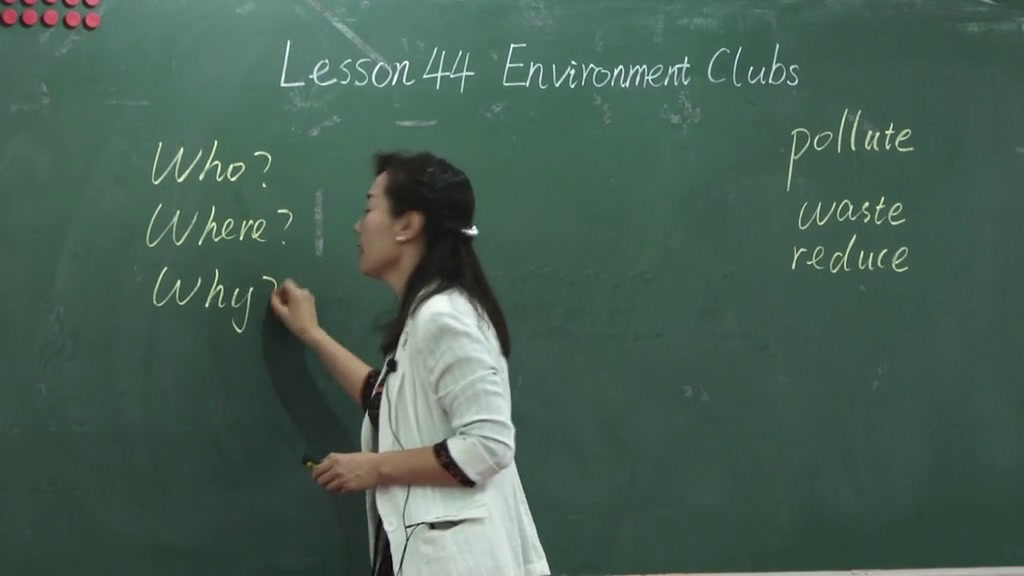 Lesson 44 Environment Clubs
Who?
Where?
Why?
pollute
waste
reduce